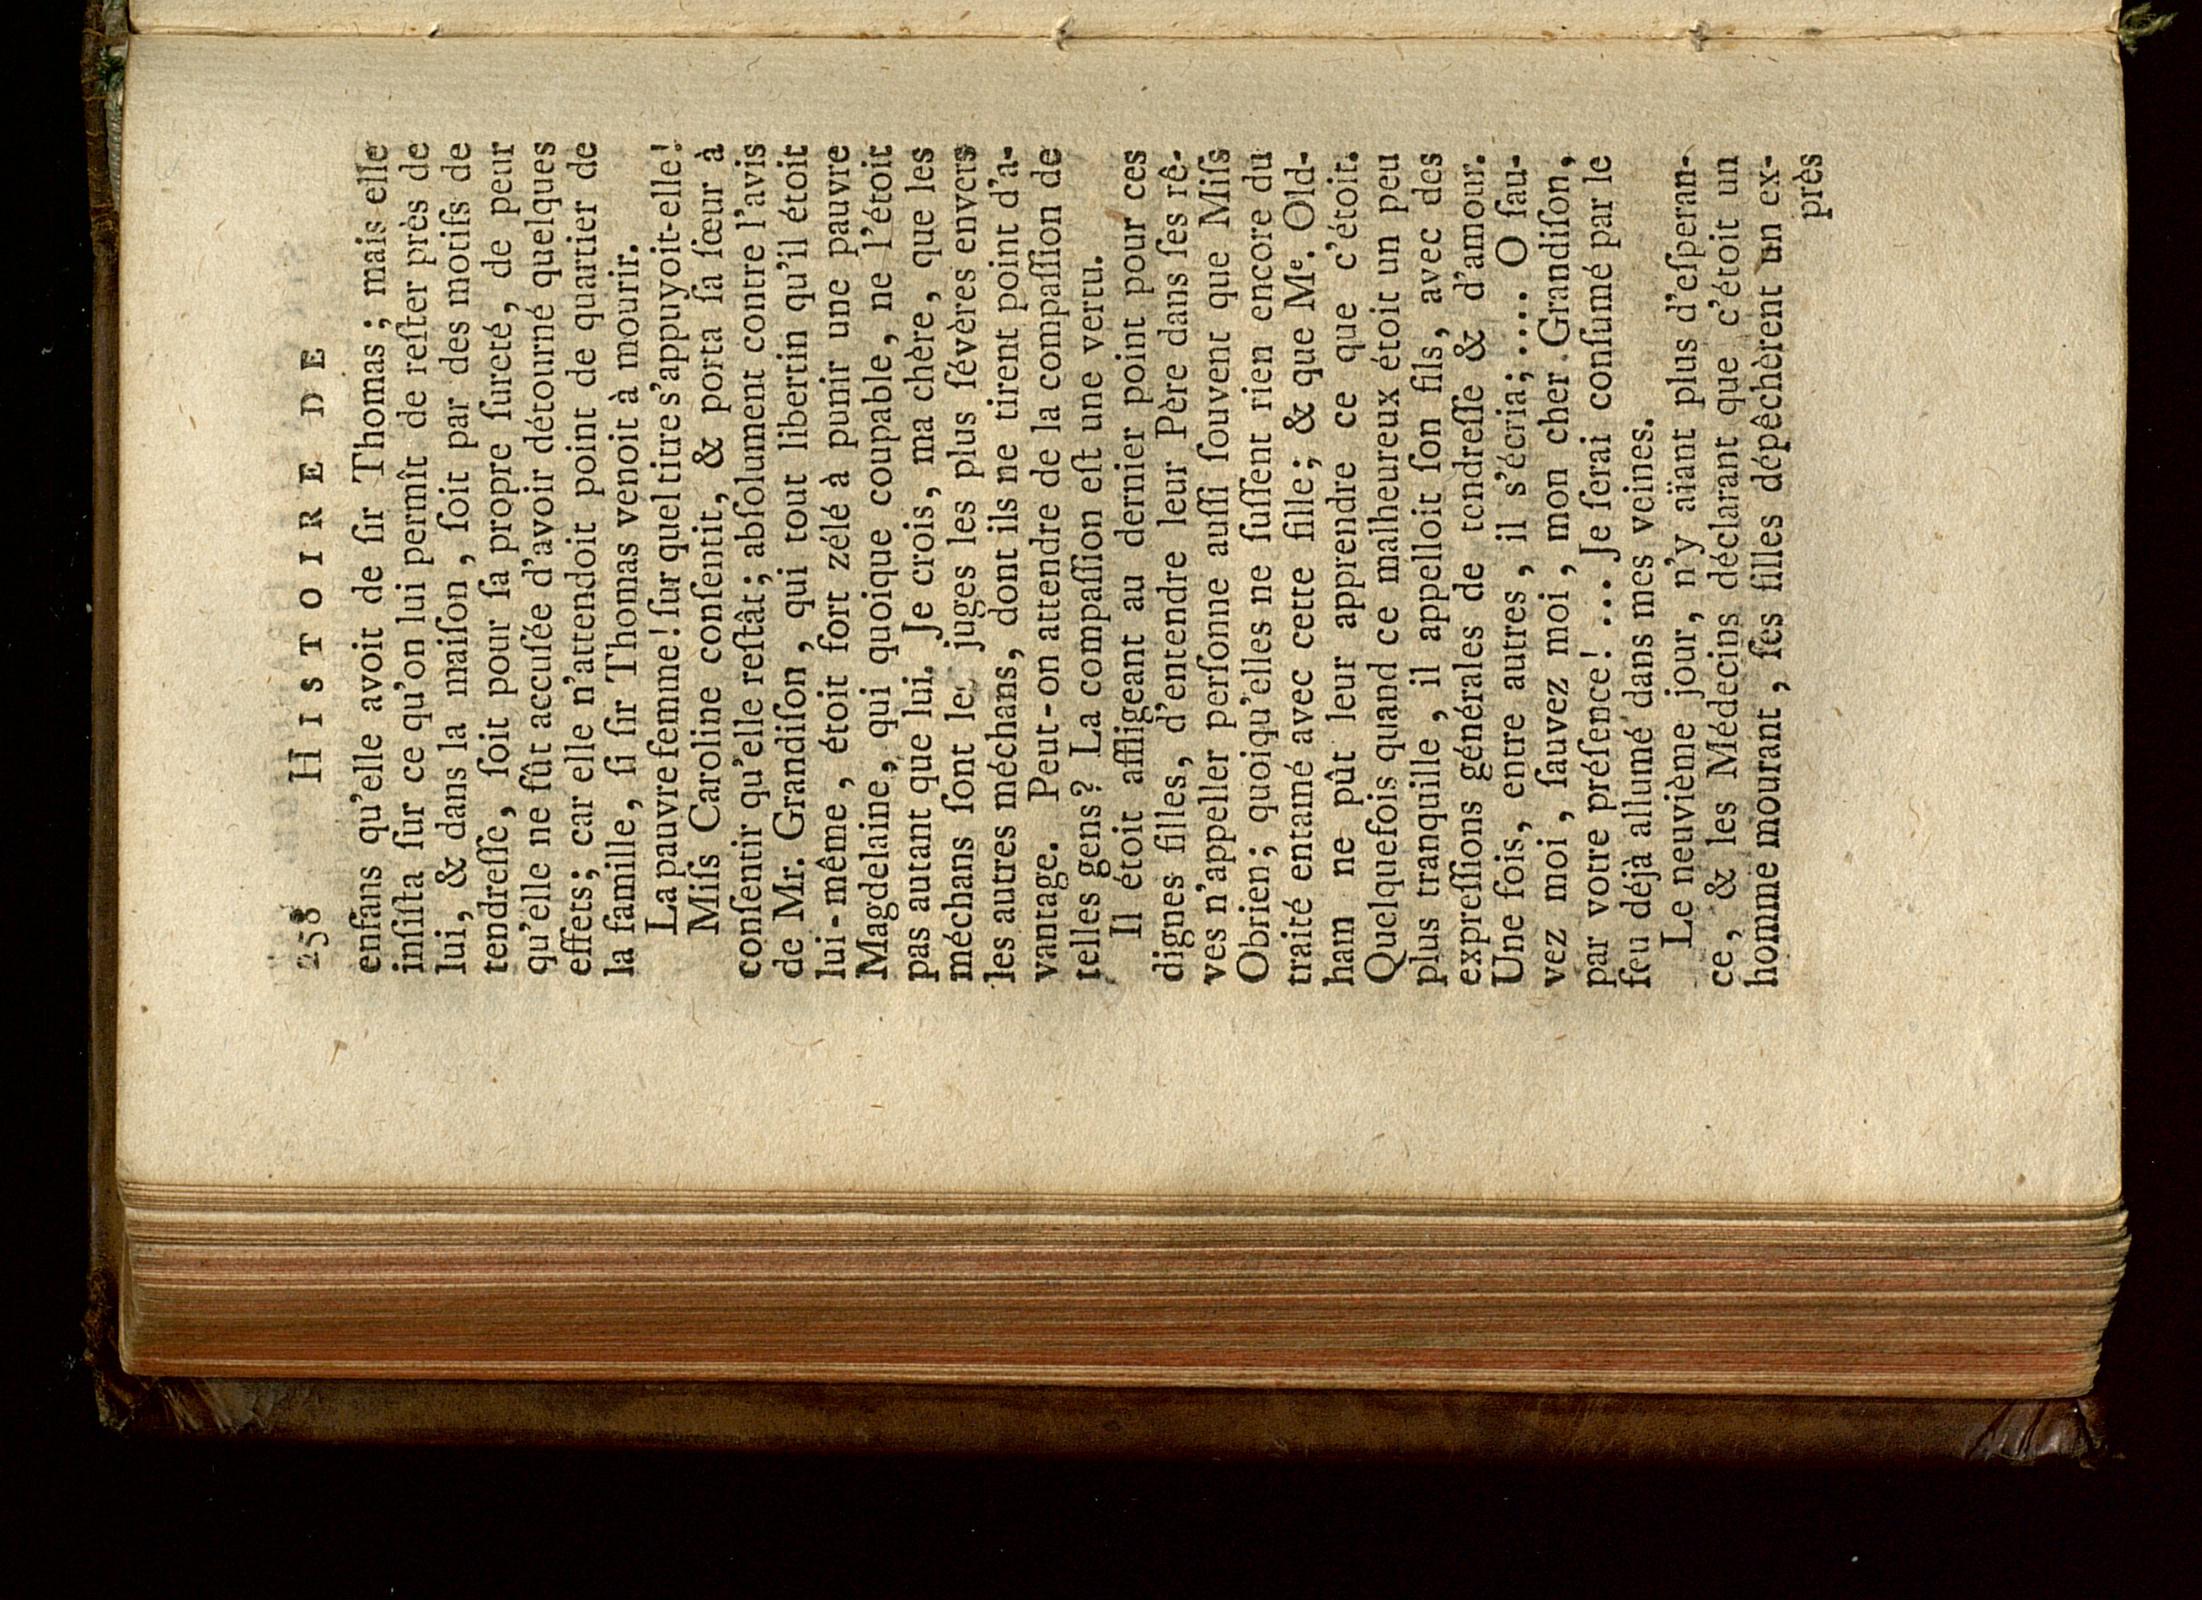 258 HISTOIRE DE
enfans qu'elle avoit de ſir Thomas; mais elle
inſiſta ſur ce qu'on lui permît de reſter près de
lui, & dans la maiſon, ſoit par des motifs de
tendreſſe, ſoit pour ſa propre ſureté, de peur
qu'elle ne fût accuſée d'avoir détourné quelques
effets; car elle n'attendoit point de quartier de
la famille, ſi ſir Thomas venoit à mourir.
La pauvre femme! ſur quel titre s'appuyoit-elle!
Miſs Caroline conſentit, & porta ſa ſœur à
conſentir qu'elle reſtât; abſolument contre l'avis
de Mr. Grandiſon, qui tout libertin qu'il étoit
lui-même, étoit fort zélé à punir une pauvre
Magdelaine, qui quoique coupable, ne l'étoit
pas autant que lui. Je crois, ma chère, que les
méchans ſont les juges les plus ſévères envers
les autres méchans, dont ils ne tirent point d'a-
vantage. Peut-on attendre de la compaſſion de
telles gens? La compaſſion eſt une vertu.
Il étoit affligeant au dernier point pour ces
dignes filles, d'entendre leur Père dans ſes rê-
ves n'appeller perſonne auſſi ſouvent que Miſs
Obrien; quoiqu'elles ne ſuſſent rien encore du
traité entamé avec cette fille; & que Me. Old-
ham ne pût leur apprendre ce que c'étoit.
Quelquefois quand ce malheureux étoit un peu
plus tranquille, il appelloit ſon fils, avec des
expreſſions générales de tendreſſe & d'amour.
Une fois, entre autres, il s'écria; .... O ſau-
vez moi, ſauvez moi, mon cher Grandiſon,
par votre préſence! ... Je ſerai conſumé par le
feu déjà allumé dans mes veines.
Le neuvième jour, n'y aïant plus d'eſperan-
ce, & les Médecins déclarant que c'étoit un
homme mourant, ſes filles dépêchèrent un ex-
près